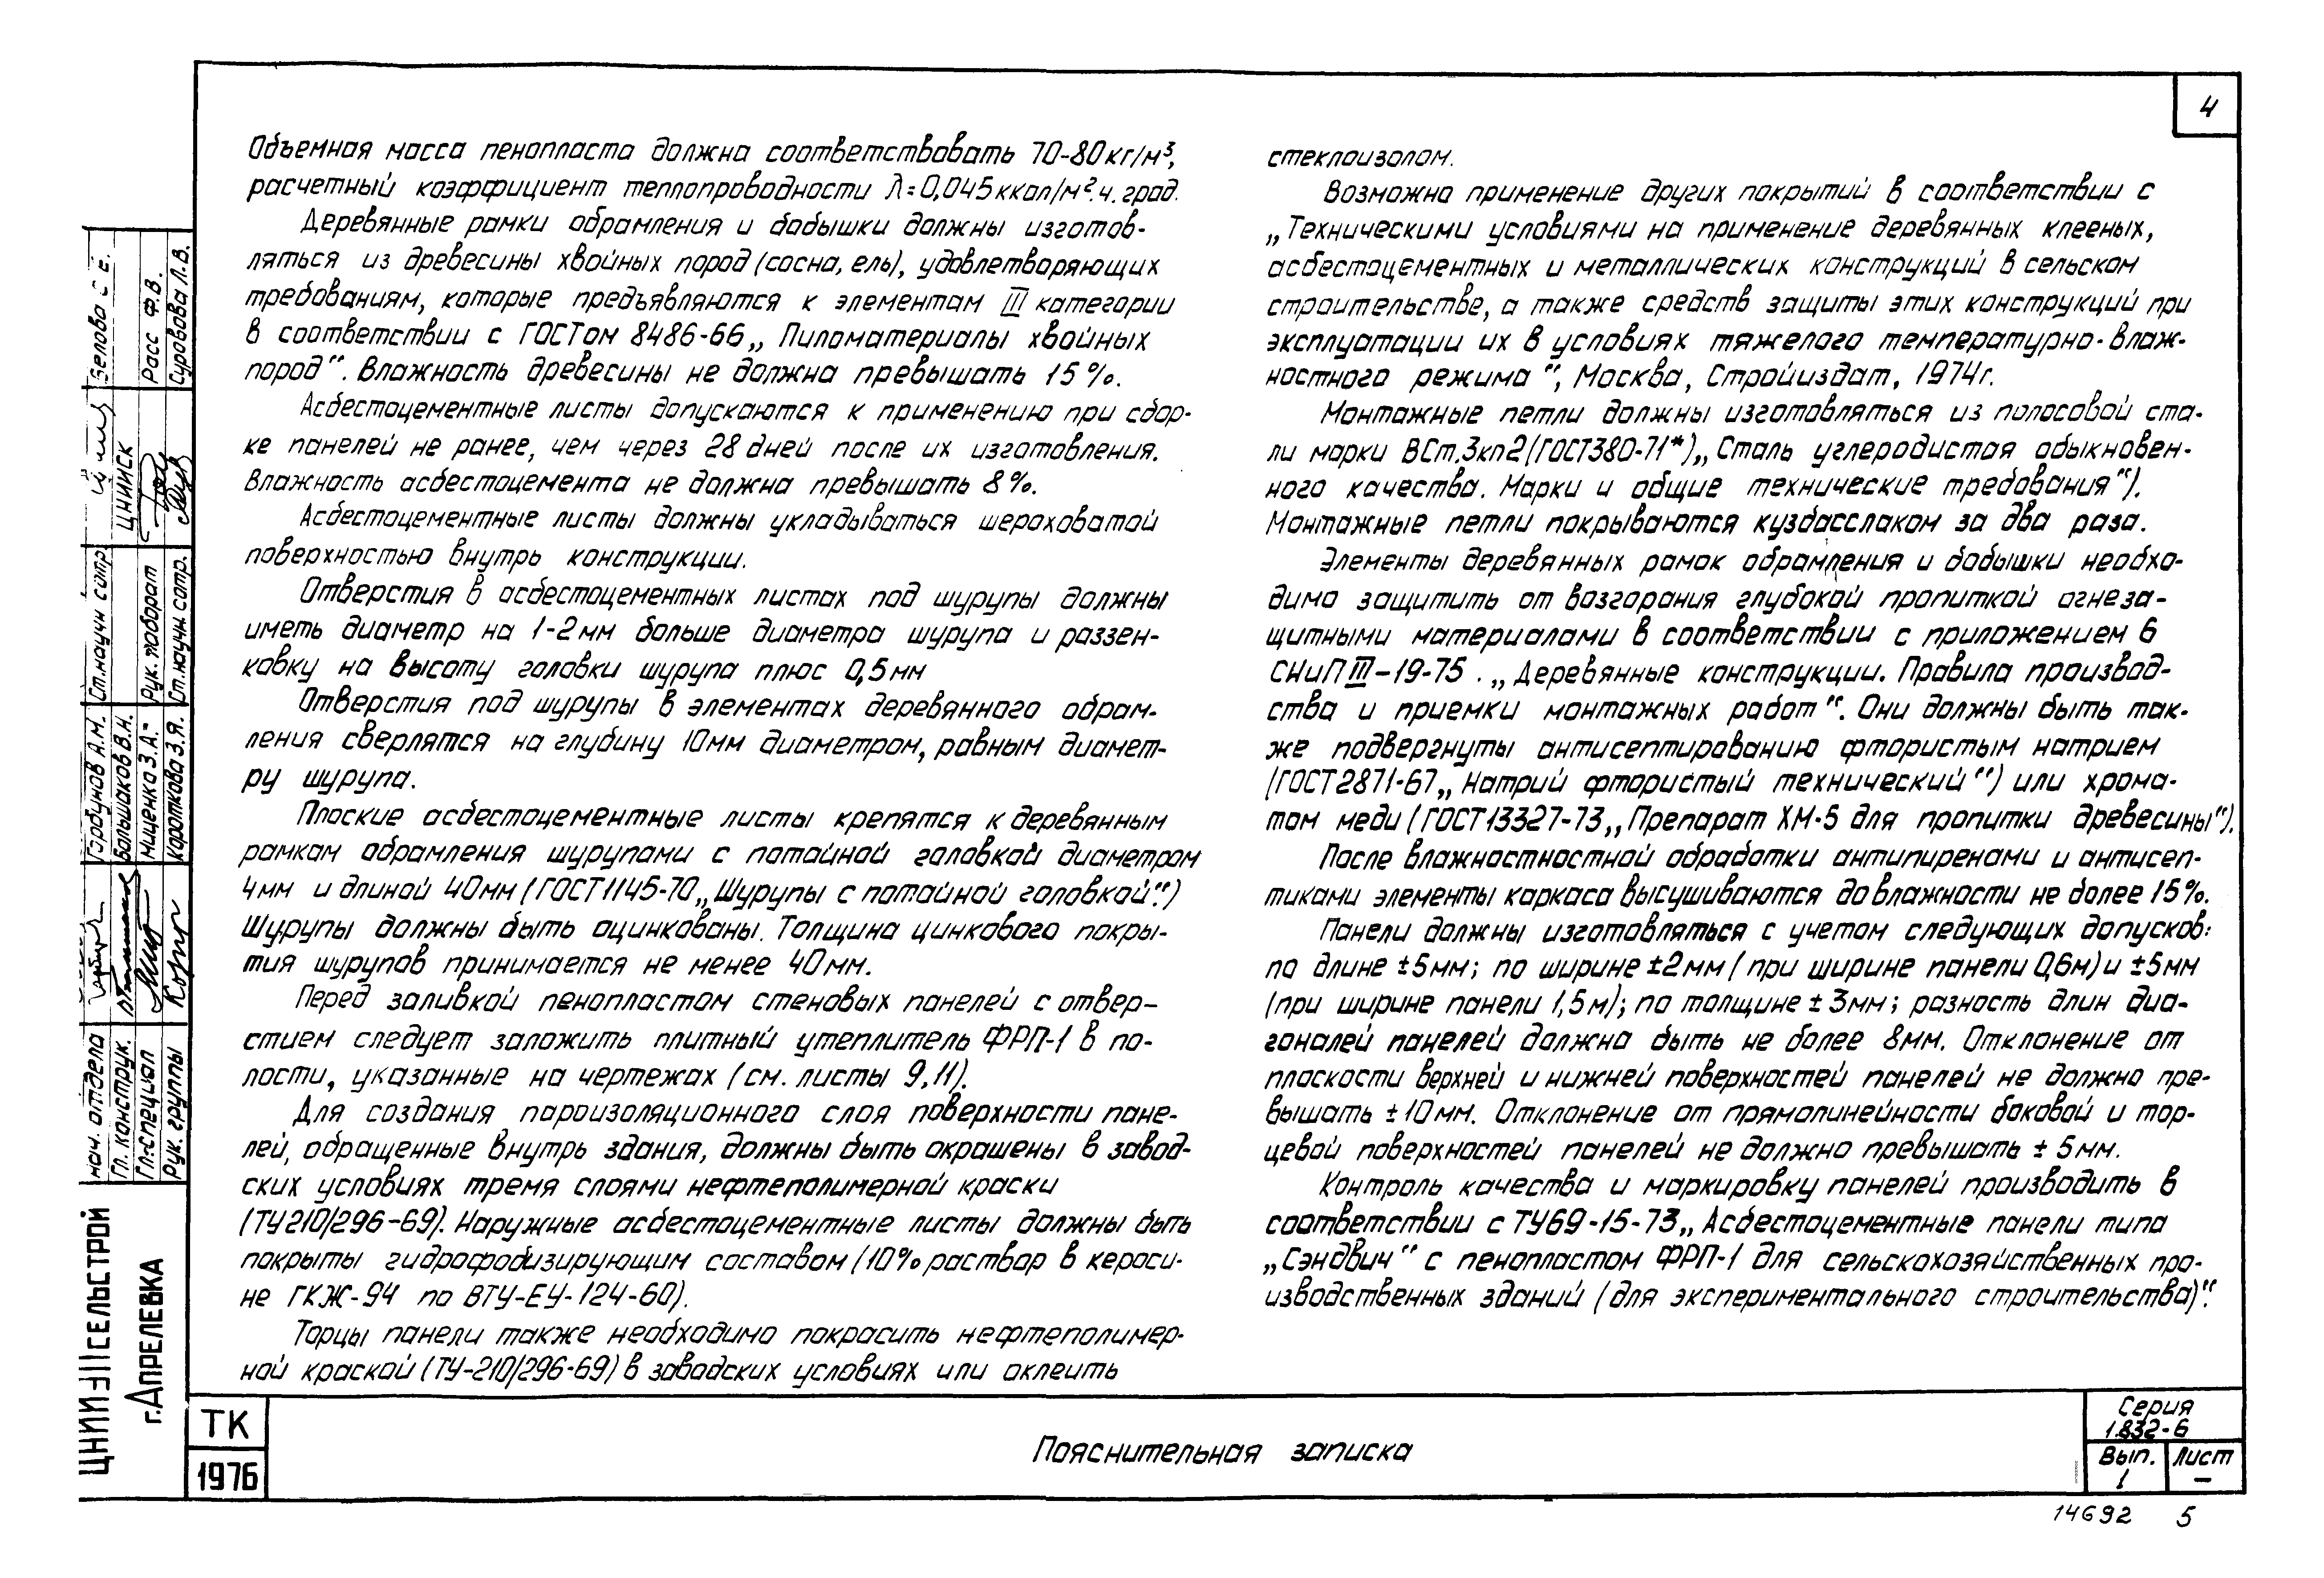 4
Объемная масса пенопласта должна соответствовать 70-80кг/м³,
расчетный коэффициент теплопроводности λ=0,045ккал/м².ч.град.
Деревянные рамки обрамления и бобышки должны изготов-
ляться из древесины хвойных пород (сосна, ель), удовлетворяющих
требованиям, которые предъявляются к элементам III категории
в соответствии с ГОСТом 8486-66 „Пиломатериалы хвойных
пород“. Влажность древесины не должна превышать 15%.
Асбестоцементные листы допускаются к применению при сбор-
ке панелей не ранее, чем через 28 дней после их изготовления.
Влажность асбестоцемента не должна превышать 8%.
Асбестоцементные листы должны укладываться шероховатой
поверхностью внутрь конструкции.
Отверстия в асбестоцементных листах под шурупы должны
иметь диаметр на 1-2мм больше диаметра шурупа и раззен-
ковку на высоту головки шурупа плюс 0,5мм
Отверстия под шурупы в элементах деревянного обрам-
ления сверлятся на глубину 10мм диаметром, равным диамет-
ру шурупа.
Плоские асбестоцементные листы крепятся к деревянным
рамкам обрамления шурупами с потайной головкой диаметром
4мм и длиной 40мм (ГОСТ1145-70 „Шурупы с потайной головкой“.)
Шурупы должны быть оцинкованы. Толщина цинкового покры-
тия шурупов принимается не менее 40мм.
Перед заливкой пенопластом стеновых панелей с отвер-
стием следует заложить плитный утеплитель ФРП-1 в по-
лости, указанные на чертежах (см. листы 9,11).
Для создания пароизоляционного слоя поверхности пане-
лей, обращенные внутрь здания, должны быть окрашены в завод-
ских условиях тремя слоями нефтеполимерной краски
(ТУ210/296-69). Наружные асбестоцементные листы должны быть
покрыты гидрофобизирующим составом (10% раствор в кероси-
не ГКЖ-94 по ВТУ-ЕУ-124-60).
Торцы панели также необходимо покрасить нефтеполимер-
ной краской (ТУ-210/296-69) в заводских условиях или оклеить
стеклоизолом.
Возможно применение других покрытий в соответствии с
„Техническими условиями на применение деревянных клееных,
асбестоцементных и металлических конструкций в сельском
строительстве, а также средств защиты этих конструкций при
эксплуатации их в условиях тяжелого температурно-влаж-
ностного режима“, Москва, Стройиздат, 1974г.
Монтажные петли должны изготовляться из полосовой ста-
ли марки ВСт.3кп2 (ГОСТ380-71*) „Сталь углеродистая обыкновен-
ного качества. Марки и общие технические требования“).
Монтажные петли покрываются кузбасслаком за два раза.
Элементы деревянных рамок обрамления и бобышки необхо-
димо защитить от возгорания глубокой пропиткой огнеза-
щитными материалами в соответствии с приложением 6
СНиП III-19-75. „Деревянные конструкции. Правила производ-
ства и приемки монтажных работ“. Они должны быть так-
же подвергнуты антисептированию фтористым натрием
(ГОСТ2871-67 „Натрий фтористый технический“) или хрома-
том меди (ГОСТ13327-73 „Препарат ХМ-5 для пропитки древесины“).
После влажностностной обработки антипиренами и антисеп-
тиками элементы каркаса высушиваются до влажности не более 15%.
Панели должны изготовляться с учетом следующих допусков:
по длине ±5мм; по ширине ±2мм (при ширине панели 0,6м) и ±5мм
(при ширине панели 1,5м); по толщине ±3мм; разность длин диа-
гоналей панелей должна быть не более 8мм. Отклонение от
плоскости верхней и нижней поверхностей панелей не должно пре-
вышать ±10мм. Отклонение от прямолинейности боковой и тор-
цевой поверхностей панелей не должно превышать ±5мм.
Контроль качества и маркировку панелей производить в
соответствии с ТУ69-15-73 „Асбестоцементные панели типа
„Сэндвич“ с пенопластом ФРП-1 для сельскохозяйственных про-
изводственных зданий (для экспериментального строительства)“.
ЦНИИЭПсельстрой
г. Апрелевка
нач. отдела Горбунов А.М. Ст.научн сотр. Белова С.Е.
Гл. конструк. Большаков В.Н. ЦНИИСК
Гл.специал Мищенко З.А. Рук. лаборат Расс Ф.В.
Рук. группы Короткова З.Я. Ст.научн.сотр. Суровова Л.В.
ТК
1976
Пояснительная записка
Серия
1.832-6
Вып. Лист
1 –
14692 5